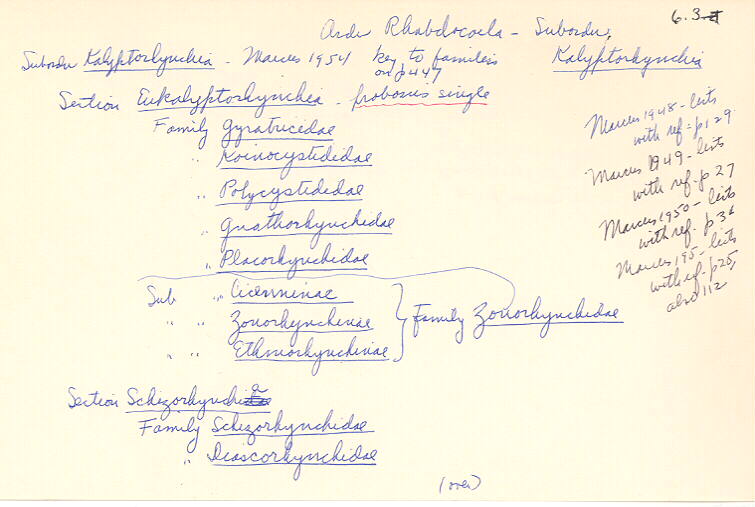 6.3.
Order Rhabdocoela - Suborder,
Kalyptorhynchia
Suborder Kalyptorhynchia - Marcus 1954 key to families
on p447
Section Eukalyptorhynchia - proboscis single
Family Gyratricidae
" Koinocystididae
" Polycystididae
" Gnathorhynchidae
" Placorhynchidae
Sub " Cicerininae
" " Zonorhynchinae
" " Ethmorhynchinae
Family Zonorhynchidae
Marcus 1948 - lists
with ref - p129
Marcus 1949 - lists
with ref. p 27
Marcus 1950 - lists
with ref. p 36
Marcus 195- lists
with ref - p25,
also 112
Section Schizorhynchia
Family Schizorhynchidae
" Diascorhynchidae
(over)